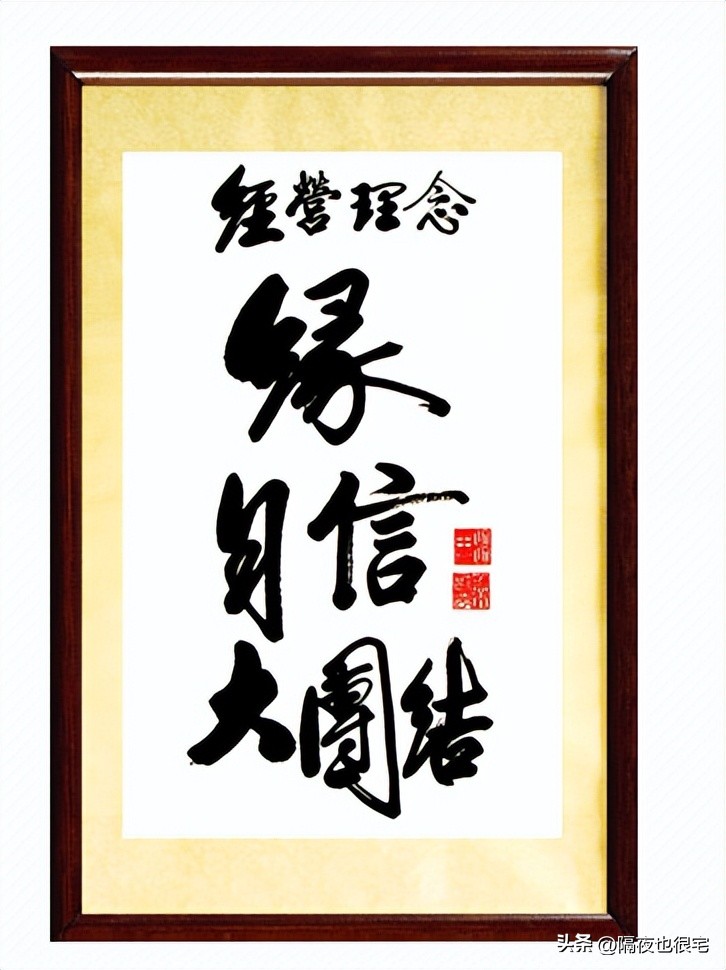 經營理念
縁
自信
大團結
头条 @隔夜也很宅